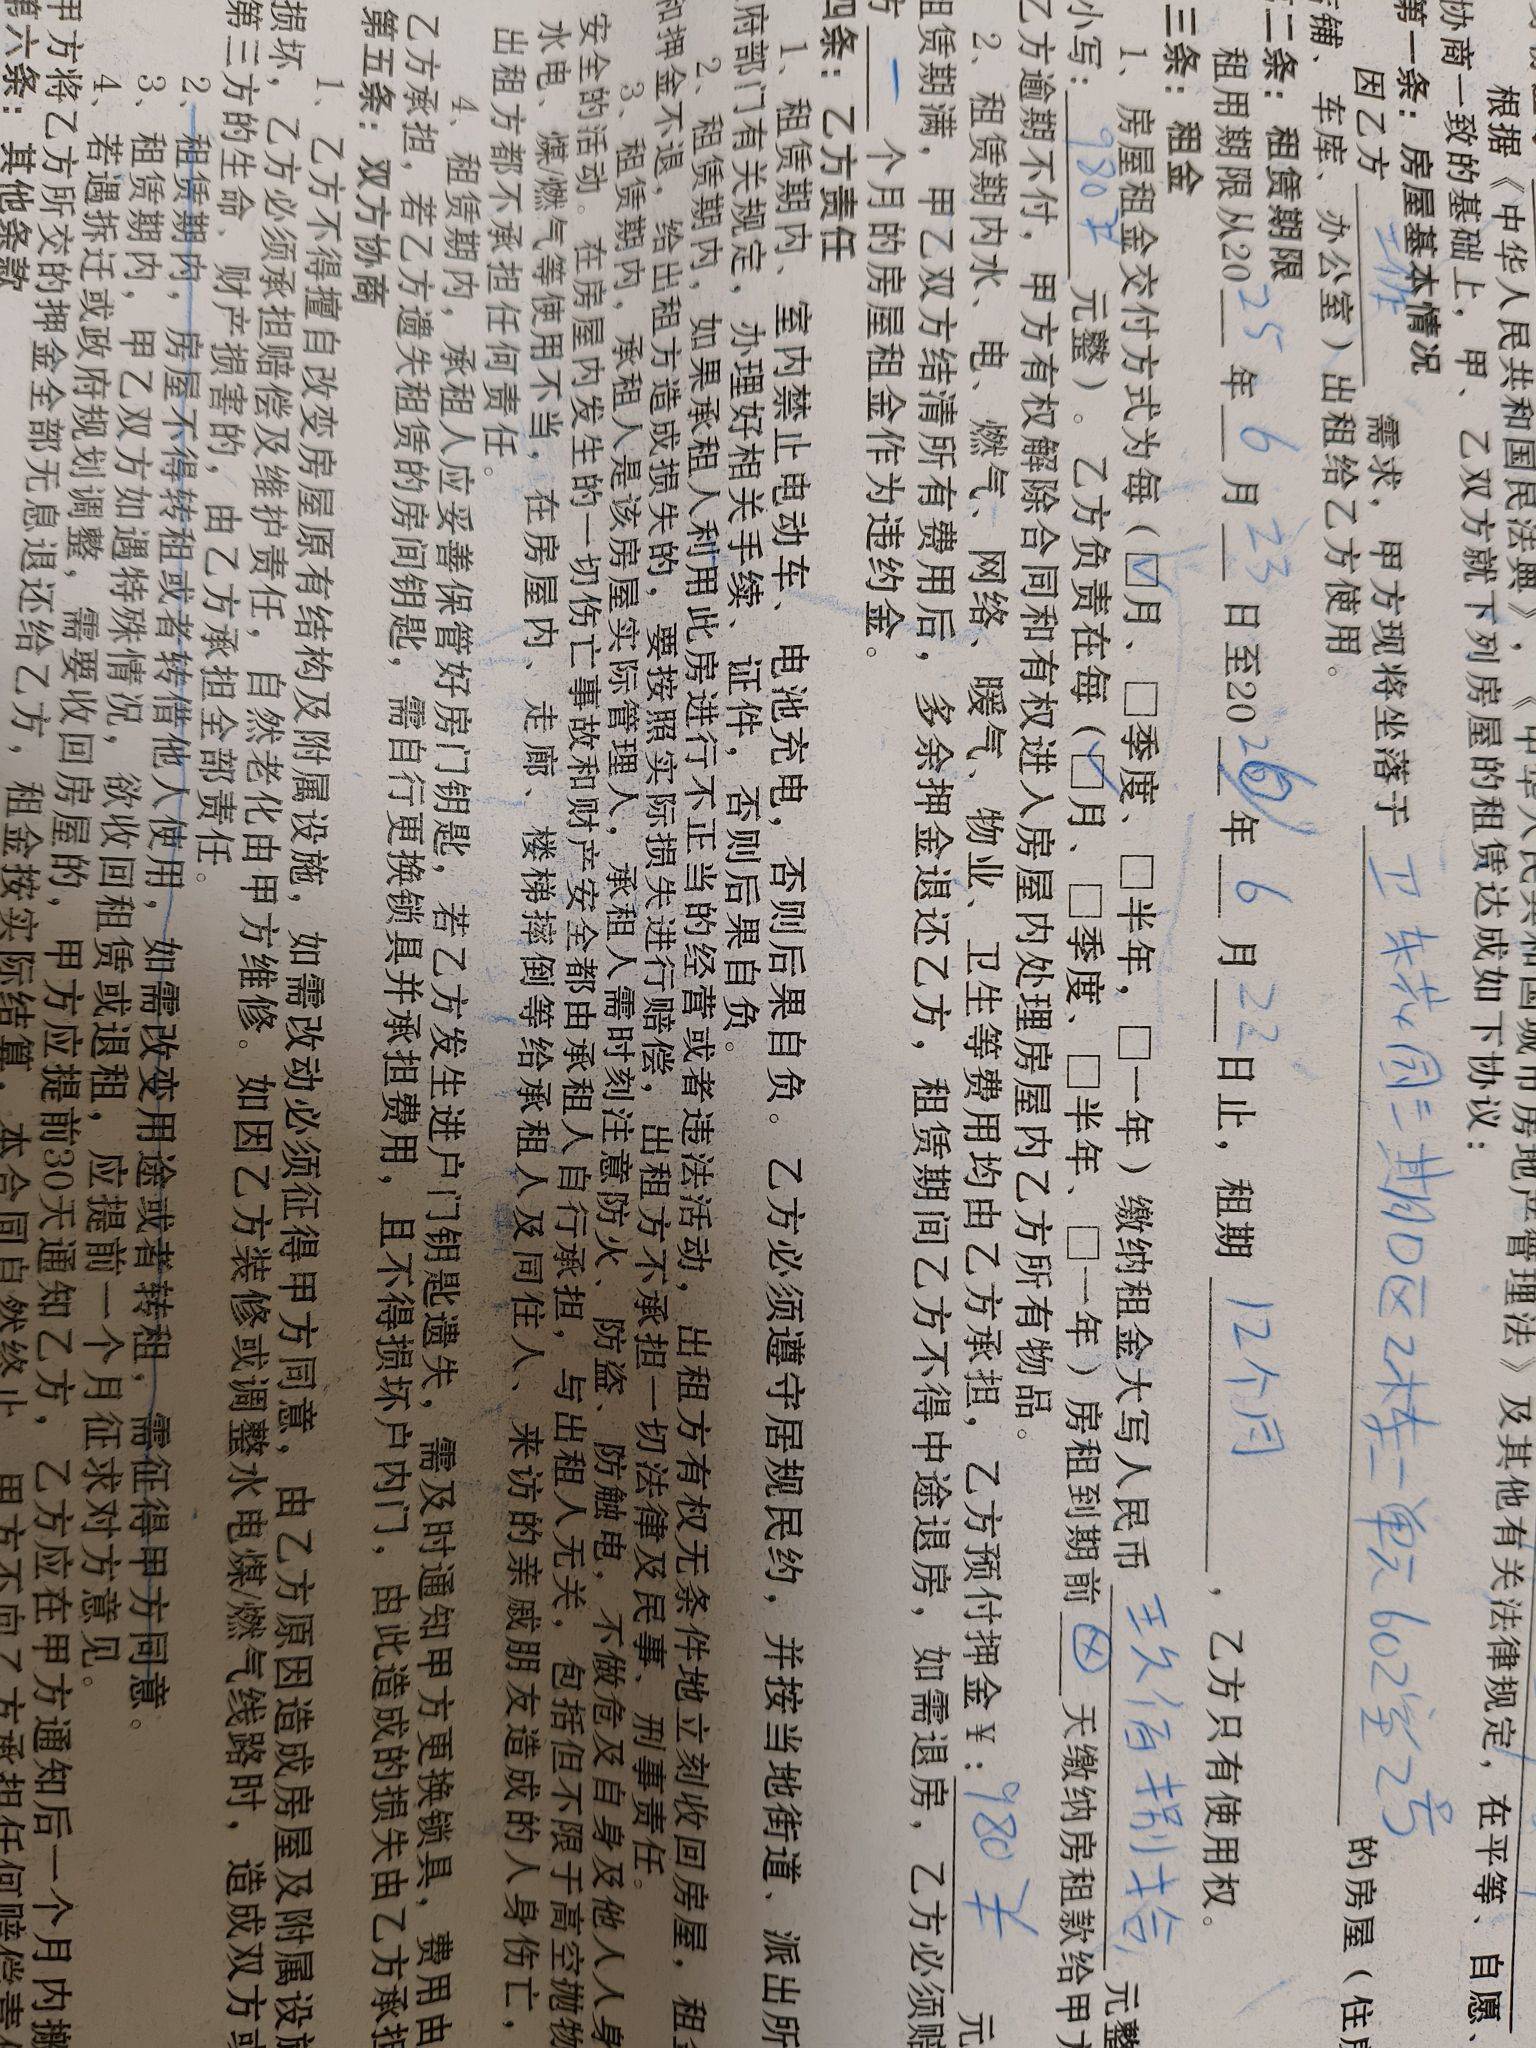 根据《中华人民共和国民法典》，《中华人民共和国城市房地产管理法》及其他有关法律规定，在平等、自愿、
协商一致的基础上，甲、乙双方就下列房屋的租赁达成如下协议：
第一条：房屋基本情况
因乙方 需求，甲方现将坐落于 卫东花园三期D区2栋二单元602室2号 的房屋（住房
铺、车库、办公室）出租给乙方使用。
二条：租赁期限
租用期限从2025年6月23日至2026年6月22日止，租期12个月，乙方只有使用权。
三条：租金
1、房屋租金交付方式为每（☑月、□季度、□半年，□一年）缴纳租金大写人民币 玖佰捌拾 元整
小写：980元整）。乙方负责在每（☑月、□季度、□半年、□一年）房租到期前 天缴纳房租款给甲方
乙方逾期不付，甲方有权解除合同和有权进入房屋内处理房屋内乙方所有物品。
2、租赁期内水、电、燃气、网络、暖气、物业、卫生等费用均由乙方承担，乙方预付押金¥：980 元
租赁期满，甲乙双方结清所有费用后，多余押金退还乙方，租赁期间乙方不得中途退房，如需退房，乙方必须赔
方 一 个月的房屋租金作为违约金。
四条：乙方责任
1、租赁期内、室内禁止电动车、电池充电，否则后果自负。乙方必须遵守居规民约，并按当地街道、派出所
府部门有关规定，办理好相关手续、证件，否则后果自负。
2、租赁期内，如果承租人利用此房进行不正当的经营或者违法活动，出租方有权无条件地立刻收回房屋，租金
和押金不退，给出租方造成损失的，要按照实际损失进行赔偿，出租方不承担一切法律及民事、刑事责任。
3、租赁期内，承租人是该房屋实际管理人，承租人需时刻注意防火、防盗、防触电，不做危及自身及他人人身
安全的活动。在房屋内发生的一切伤亡事故和财产安全都由承租人自行承担，与出租人无关，包括但不限于高空抛物
水电、煤/燃气等使用不当，在房屋内、走廊、楼梯摔倒等给承租人及同住人、来访的亲戚朋友造成的人身伤亡，
出租方都不承担任何责任。
4、租赁期内，承租人应妥善保管好房门钥匙，若乙方发生进户门钥匙遗失，需及时通知甲方更换锁具，费用由
乙方承担，若乙方遗失租赁的房间钥匙，需自行更换锁具并承担费用，且不得损坏户内门，由此造成的损失由乙方承担
第五条：双方协商
1、乙方不得擅自改变房屋原有结构及附属设施，如需改动必须征得甲方同意，由乙方原因造成房屋及附属设施
损坏，乙方必须承担赔偿及维护责任，自然老化由甲方维修。如因乙方装修或调整水电煤/燃气线路时，造成双方或
第三方的生命、财产损害的，由乙方承担全部责任。
2、租赁期内，房屋不得转租或者转借他人使用，如需改变用途或者转租，需征得甲方同意。
3、租赁期内，甲乙双方如遇特殊情况，欲收回租赁或退租，应提前一个月征求对方意见。
4、若遇拆迁或政府规划调整，需要收回房屋的，甲方应提前30天通知乙方，乙方应在甲方通知后一个月内搬
甲方将乙方所交的押金全部无息退还给乙方，租金按实际结算，本合同自然终止，甲方不向乙方承担任何赔偿
第六条：其他条款